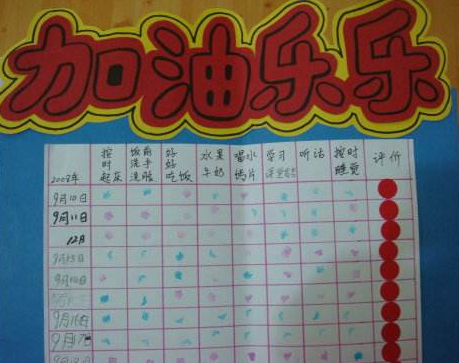 加油乐乐
2008年 按时起床 饭前洗手洗脸 好好吃饭 水果牛奶 喝水钙片 学习 听话 按时睡觉 评价
9月10日
9月11日
12月
9月13日
9月16日
9月17